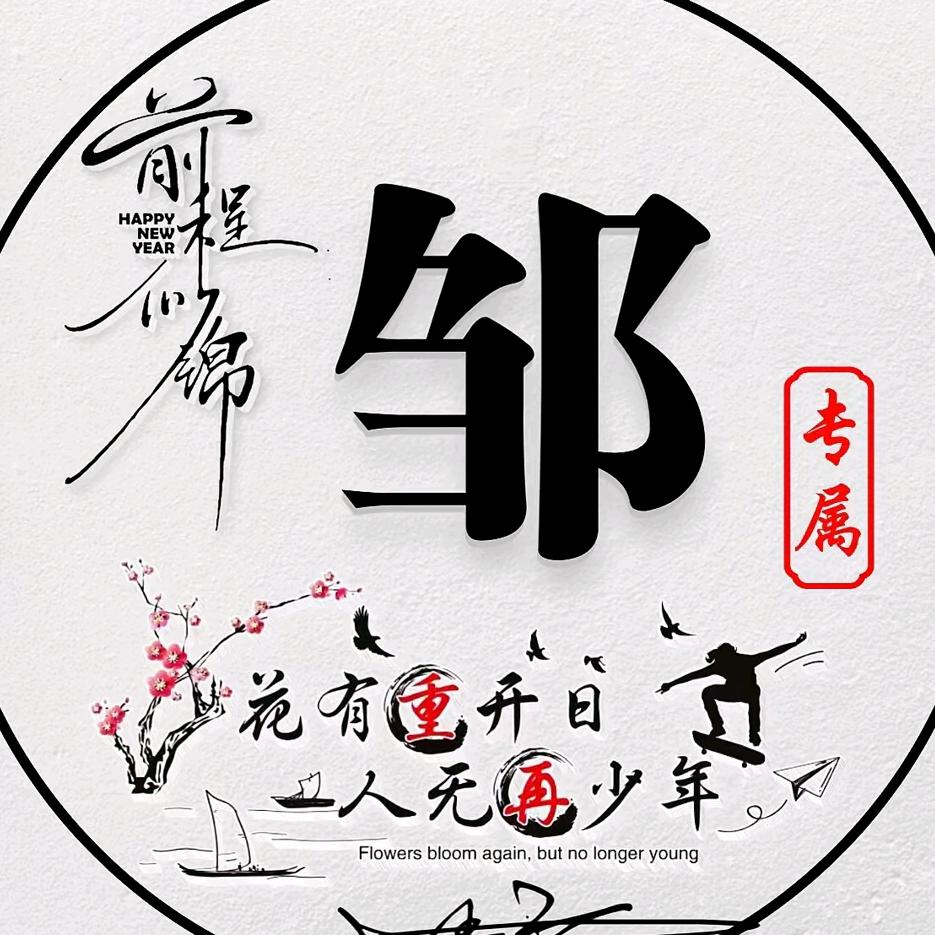 前程
HAPPY
NEW
YEAR
似锦
邹
专属
花有重开日
人无再少年
Flowers bloom again, but no longer young